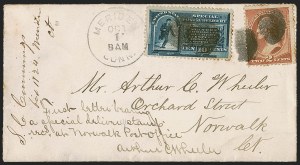 MERIDEN
OCT
1
8AM
CONN.
SPECIAL
J. C. Cummings
Box 1124, Meriden
ct
Mr. Arthur C. Wheeler
Orchard Street
Norwalk
Ct.
First letter bearing
a special delivery stamp
rec'd at Norwalk Post office
Arthur C Wheeler